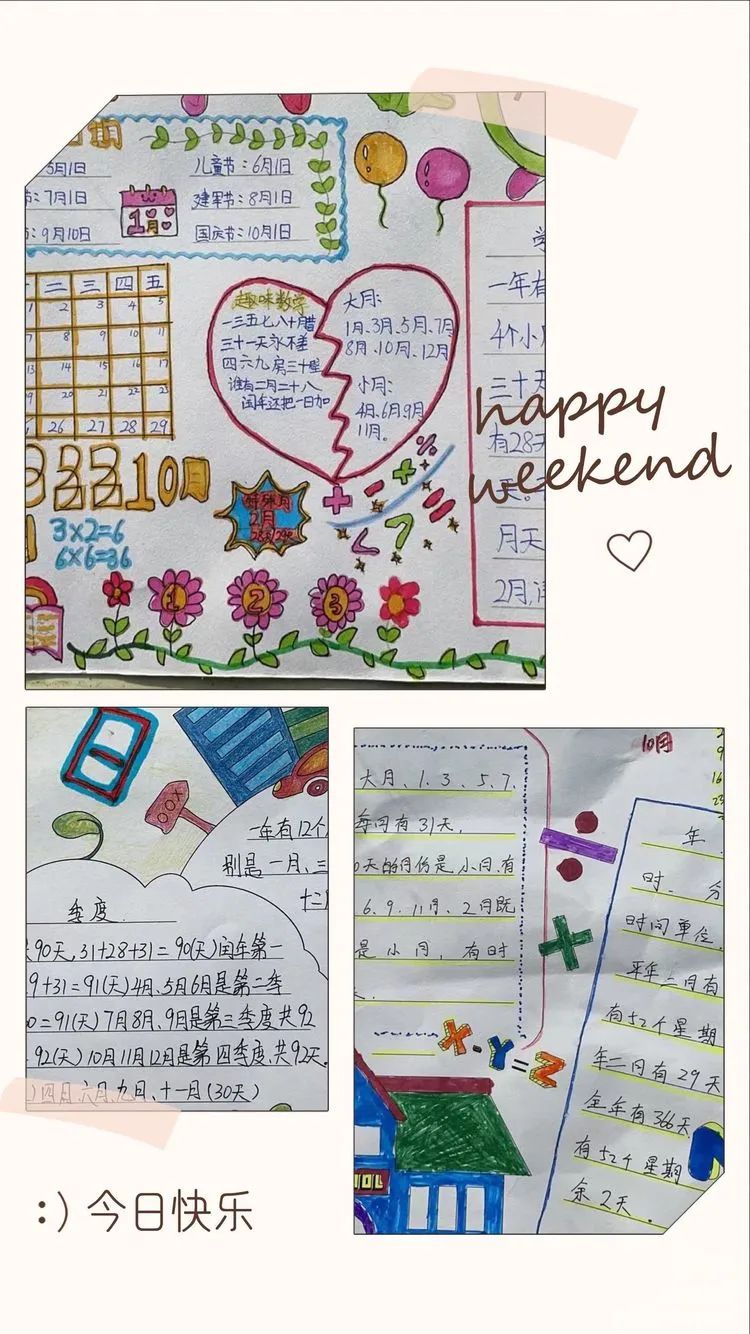 期
5月1日
儿童节：6月1日
节：7月1日
建军节：8月1日
节：9月10日
国庆节：10月1日
1月
二 三 四 五
1 2 3 4 5
8 9 10 11
14 15 16 17
20 21 22 23
26 27 28 29
趣味数学
一三五七八十月腊
三十一天永不差
四六九
三十整
谁有二月二十八
闰年还把一日加
大月：
1月、3月、5月、7月
8月、10月、12月
小月：
4月、6月、9月
11月。
10月
3×2=6
6×6=36
特殊月
2月
28/29
% + - × ÷ =
1 2 3
一年有
4个小月
三十天
有28天
月天
2月，
happy
weekend
一年有12个
别是一月、三
十二
季度
90天，31+28+31=90(天)闰年第一
9+31=91(天)4月、5月6月是第二季
0=91(天)7月8月、9月是第三季度共92
92(天)10月11月12月是第四季度、共92天.
)四月、六月、九月、十一月(30天)
10月
2
9
16
23
大月、1、3、5、7、
每月有31天，
0天的月份是小月、有
6、9、11月、2月既
是小月，有时
X·Y=Z
年
时、分
时间单位
平年二月有
有52个星期
年二月有29天
全年有366天
有52个星期
余2天.
:) 今日快乐